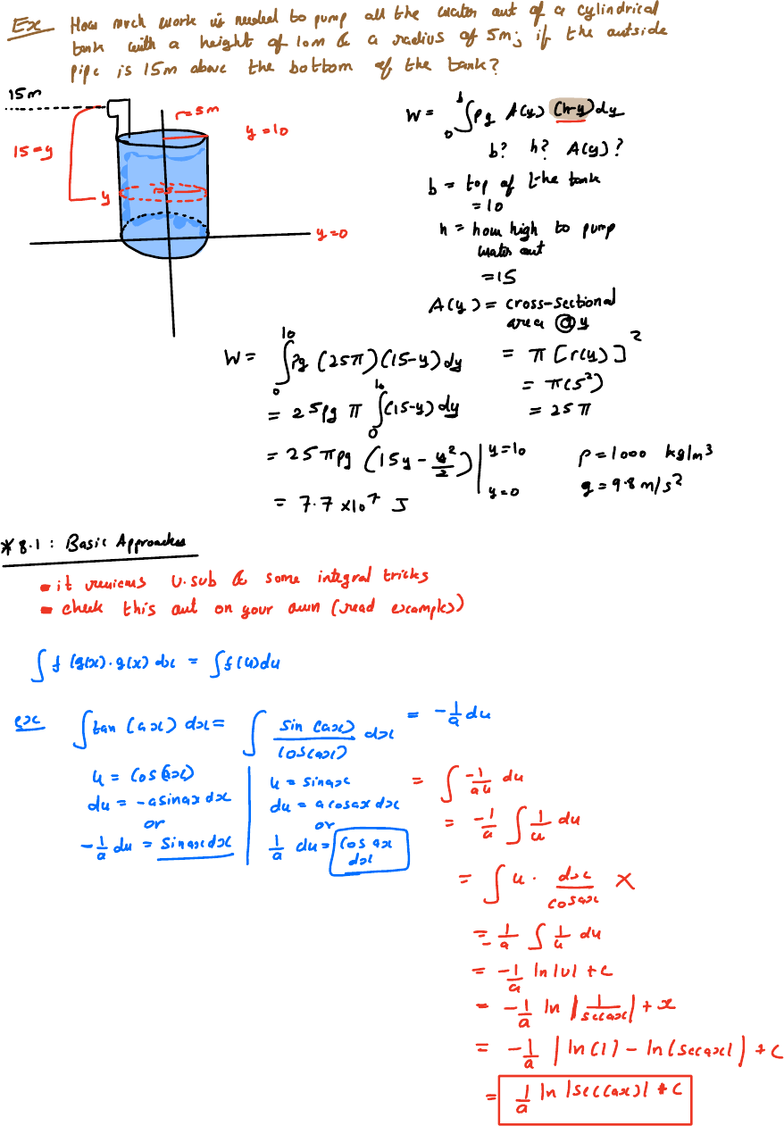 Ex How much work is needed to pump all the water out of a cylindrical
tank with a height of 10m & a radius of 5m; if the outside
pipe is 15m above the bottom of the tank?
15m
r=5m
y=10
15-y
y
y=0
W = ∫₀ᵇ ρg A(y) (h-y)dy
b? h? A(y)?
b = top of the tank
=10
h = how high to pump
water out
=15
A(y) = cross-sectional
area @y
= π[r(y)]²
= π(5²)
= 25π
W = ∫₀¹⁰ ρg (25π)(15-y)dy
= 25ρg π ∫₀¹⁰ (15-y)dy
= 25πρg (15y - y²/2) | y=10 y=0
= 7.7 x10⁷ J
ρ=1000 kg/m³
g=9.8 m/s²
* 8.1: Basic Approaches
• it reviews u.sub & some integral tricks
• check this out on your own (read examples)
∫f(g(x)·g(x) dx = ∫f(u)du
ex ∫tan(ax) dx = ∫ sin(ax)/cos(ax) dx
u = cos(ax)
du = -asinax dx
or
-1/a du = sinax dx
u = sinax
du = acosax dx
or
1/a du = cos ax dx
= -1/a du
= ∫ -1/au du
= -1/a ∫ 1/u du
= ∫ u · dx/cosax X
= -1/a ∫ 1/u du
= -1/a ln|u| + C
= -1/a ln |1/secax| + x
= -1/a | ln(1) - ln(secax| + C
= 1/a ln |sec(ax)| + C